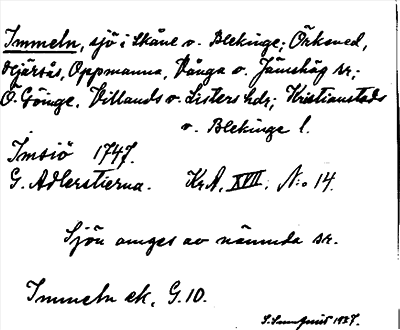 Immeln, sjö i Skåne o. Blekinge; Örkened,
Hjärsås, Oppmanna, Vånga o. Jämshög sr;
Ö. Göinge, Villands o. Listers hdr; Kristianstads
o. Blekinge l.
Imsiö 1747.
G. Adlerstierna. Kr.A, XVII, N:o 14.
Sjön omges av nämnda sr.
Immeln ek, G.10.